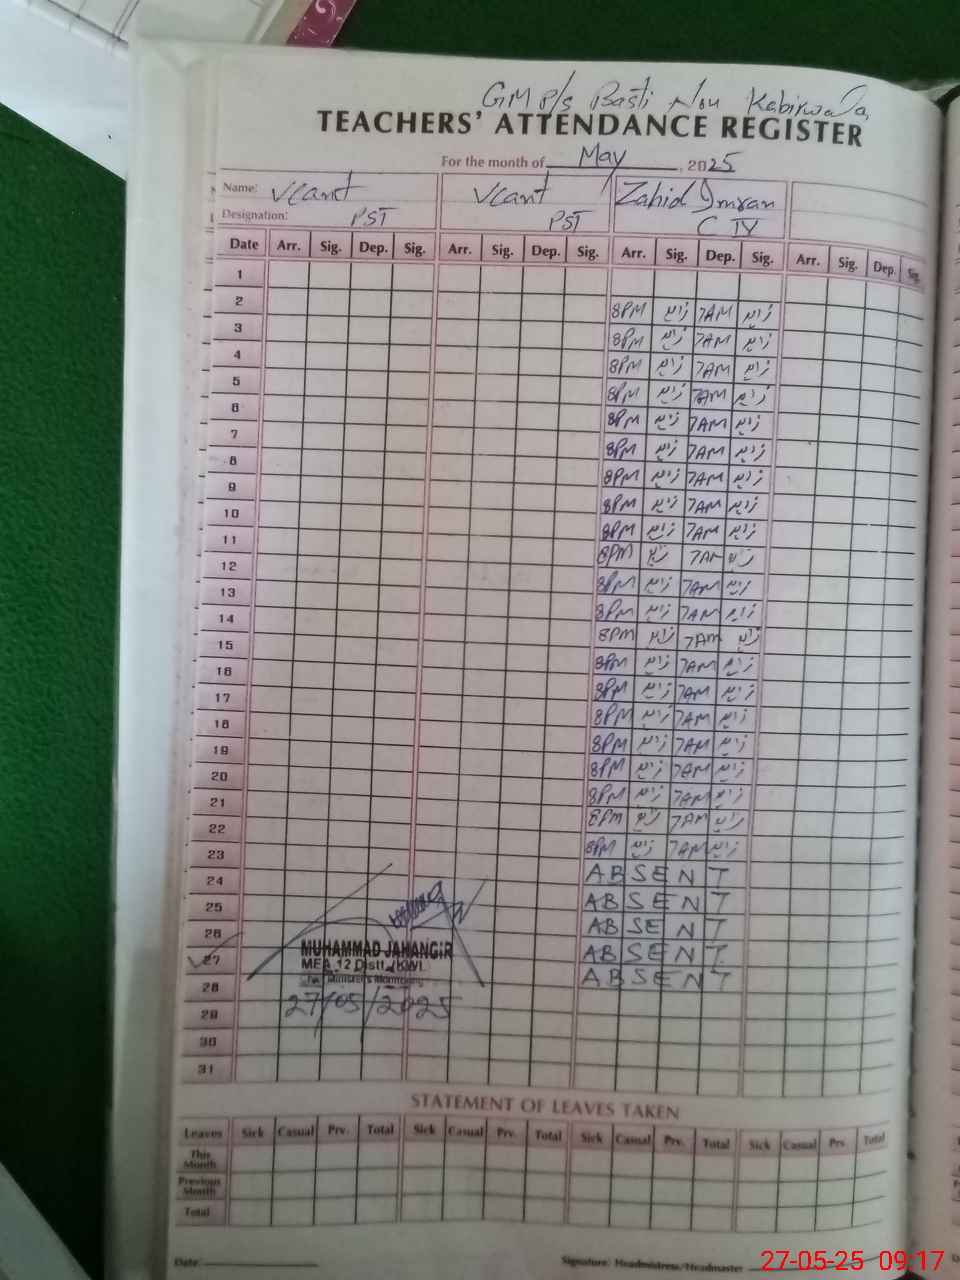 GM P/S Basti Nou Kabirwala
TEACHERS' ATTENDANCE REGISTER
For the month of May, 2025
Name: Vcant Vcant Zahid Imran
Designation: PST PST C IV
Date Arr. Sig. Dep. Sig. Arr. Sig. Dep. Sig. Arr. Sig. Dep. Sig. Arr. Sig. Dep. Sig.
1
2 8PM زاہد 7AM زاہد
3 8PM زاہد 7AM زاہد
4 8PM زاہد 7AM زاہد
5 8PM زاہد 7AM زاہد
6 8PM زاہد 7AM زاہد
7 8PM زاہد 7AM زاہد
8 8PM زاہد 7AM زاہد
9 8PM زاہد 7AM زاہد
10 8PM زاہد 7AM زاہد
11 8PM زاہد 7AM زاہد
12 8PM زاہد 7AM زاہد
13 8PM زاہد 7AM زاہد
14 8PM زاہد 7AM زاہد
15 8PM زاہد 7AM زاہد
16 8PM زاہد 7AM زاہد
17 8PM زاہد 7AM زاہد
18 8PM زاہد 7AM زاہد
19 8PM زاہد 7AM زاہد
20 8PM زاہد 7AM زاہد
21 8PM زاہد 7AM زاہد
22 8PM زاہد 7AM زاہد
23 ABSENT
24 ABSENT
25 ABSENT
26 ABSENT
27 ABSENT
MUHAMMAD JAHANGIR
MEA 12 Distt. KWL
Monitoring
28
27/05/2025
29
30
31
STATEMENT OF LEAVES TAKEN
Leaves Sick Casual Prv. Total Sick Casual Prv. Total Sick Casual Prv. Total Sick Casual Prv. Total
This Month
Previous Month
Total
Date: Signature: Headmistress/Headmaster
27-05-25 09:17